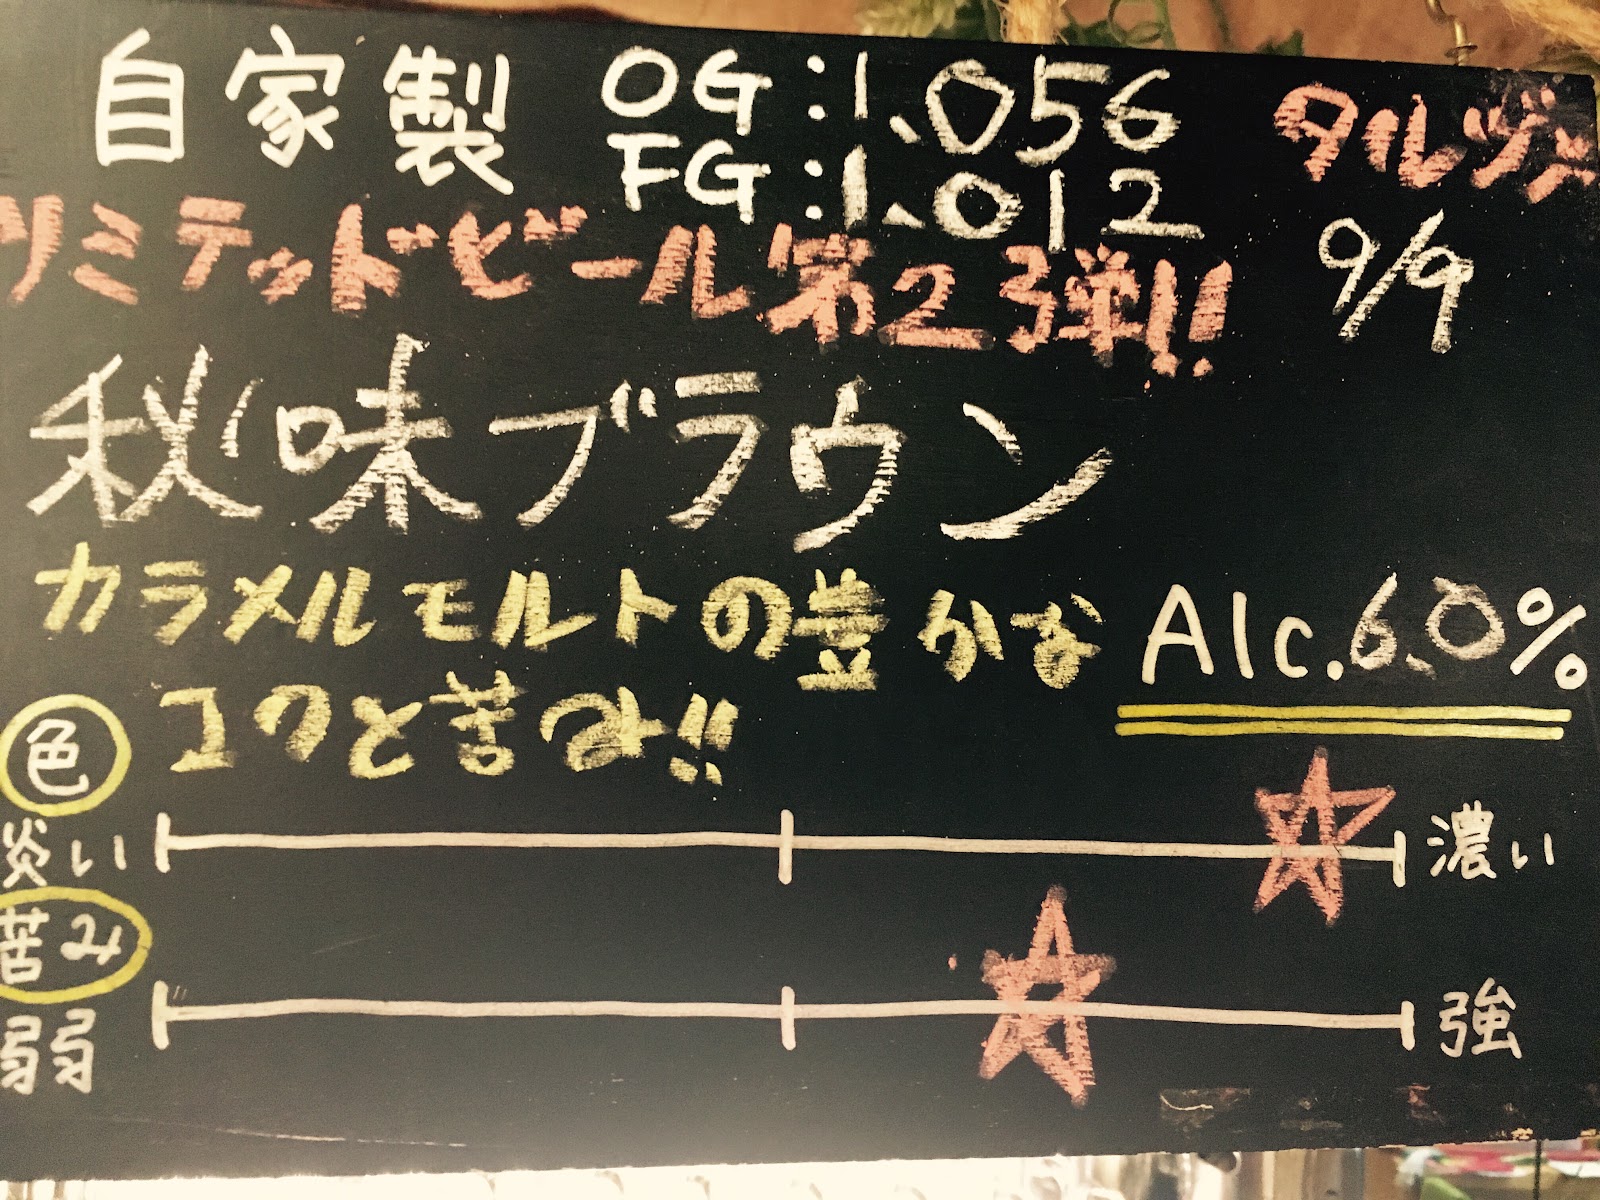 自家製 OG:1.056 タルヅメ
FG:1.012 9/9
リミテッドビール第2弾!!
秋味ブラウン
カラメルモルトの豊かな
コクと苦み!!
Alc.6.0%
色
炎い 濃い
苦み
弱 強